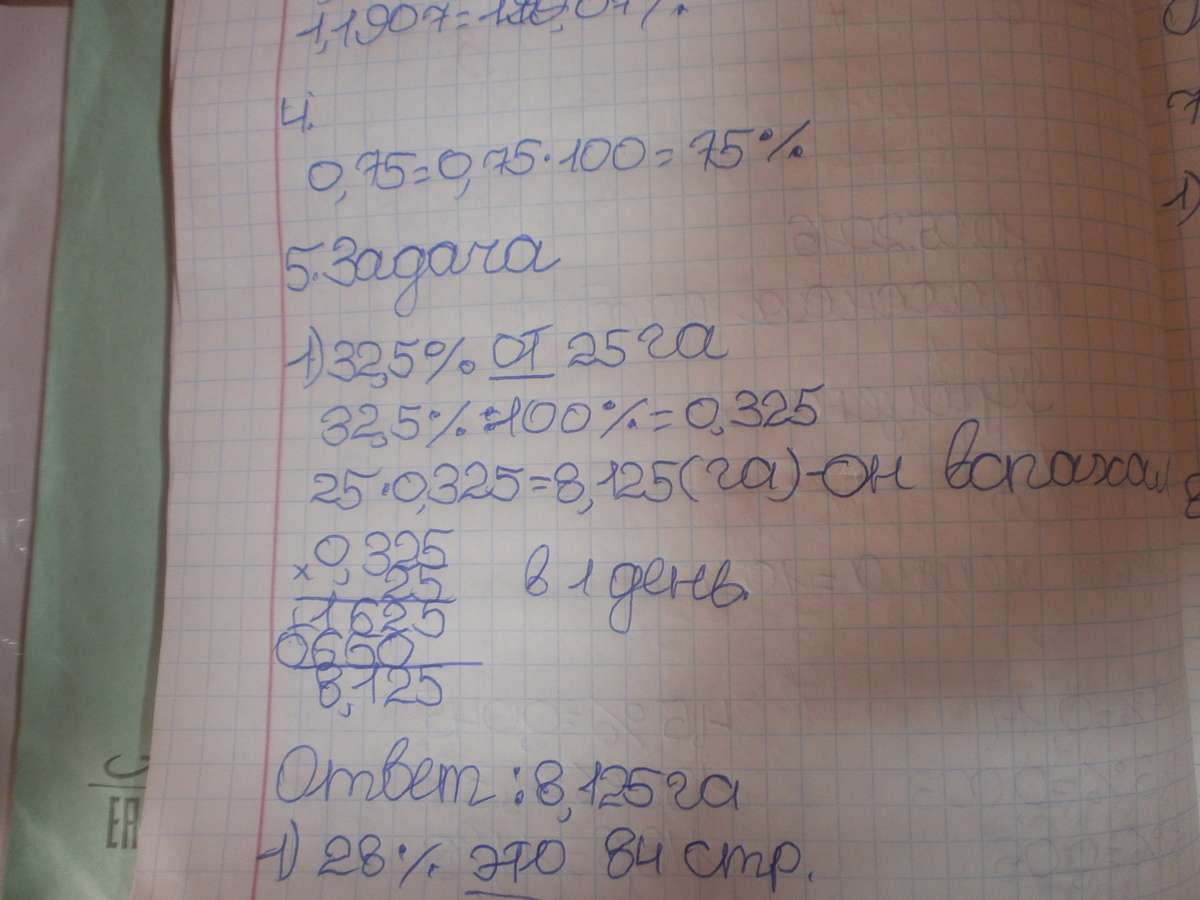 4.
0,75=0,75·100=75%
5.Задача
1)32,5% от 25га
32,5%:100%=0,325
25·0,325=8,125(га)-он вспахал
0,325
× 25
1625
0650
8,125
в 1 день.
Ответ:8,125га
1) 28% это 84 стр.
ЕАС
7
1)